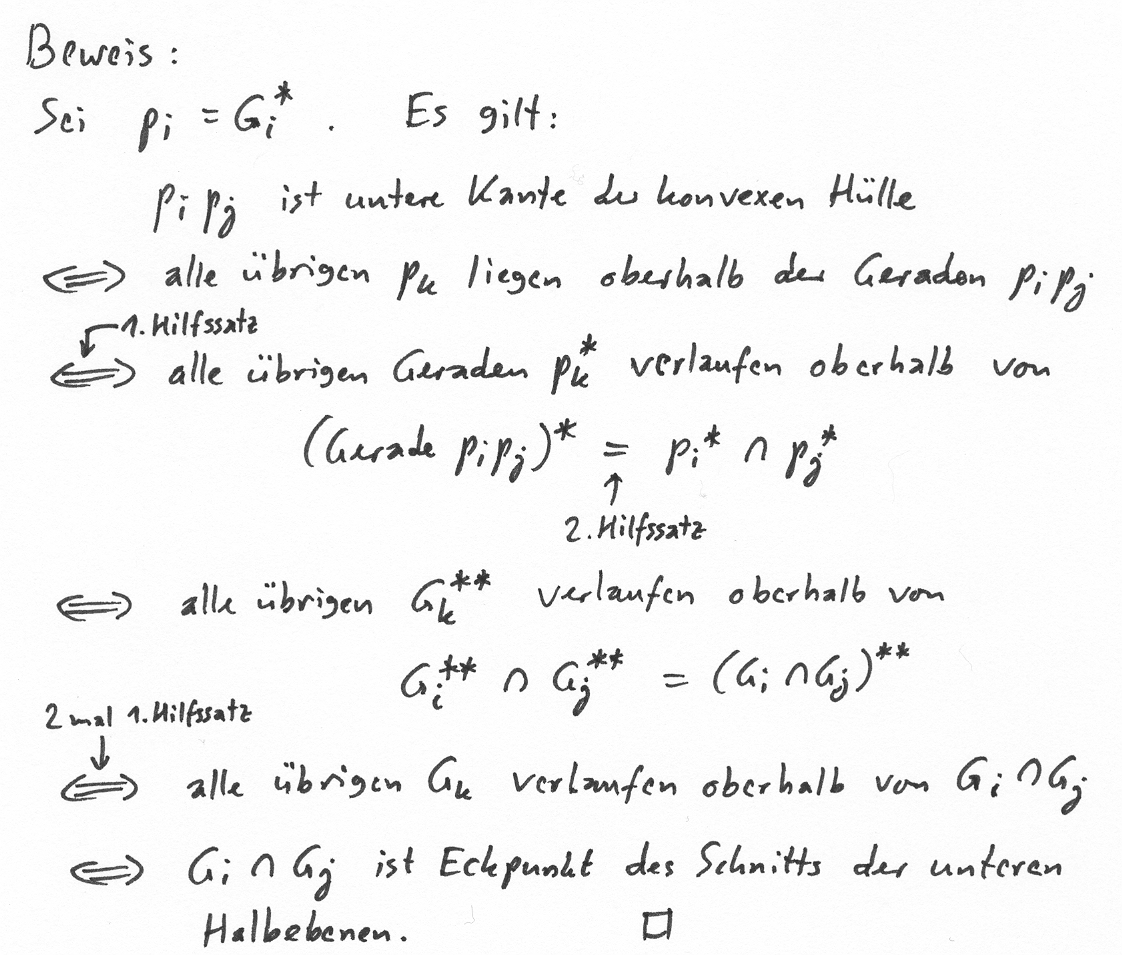 Beweis:
Sei p_i = G_i^* . Es gilt:
p_i p_j ist untere Kante der konvexen Hülle
⟺ alle übrigen p_k liegen oberhalb der Geraden p_i p_j
1. Hilfssatz
⟺ alle übrigen Geraden p_k^* verlaufen oberhalb von
(Gerade p_i p_j)^* = p_i^* ∩ p_j^*
2. Hilfssatz
⟺ alle übrigen G_k^** verlaufen oberhalb von
G_i^** ∩ G_j^** = (G_i ∩ G_j)^**
2 mal 1. Hilfssatz
⟺ alle übrigen G_k verlaufen oberhalb von G_i ∩ G_j
⟺ G_i ∩ G_j ist Eckpunkt des Schnitts der unteren
Halbebenen. □